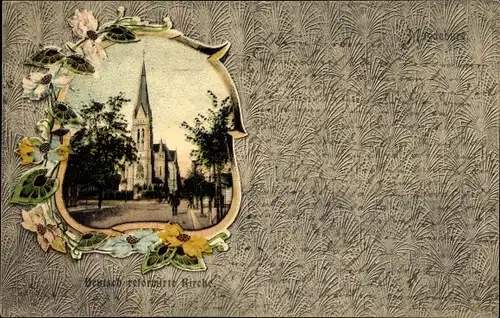 Magdeburg
Deutsch reformirte Kirche.